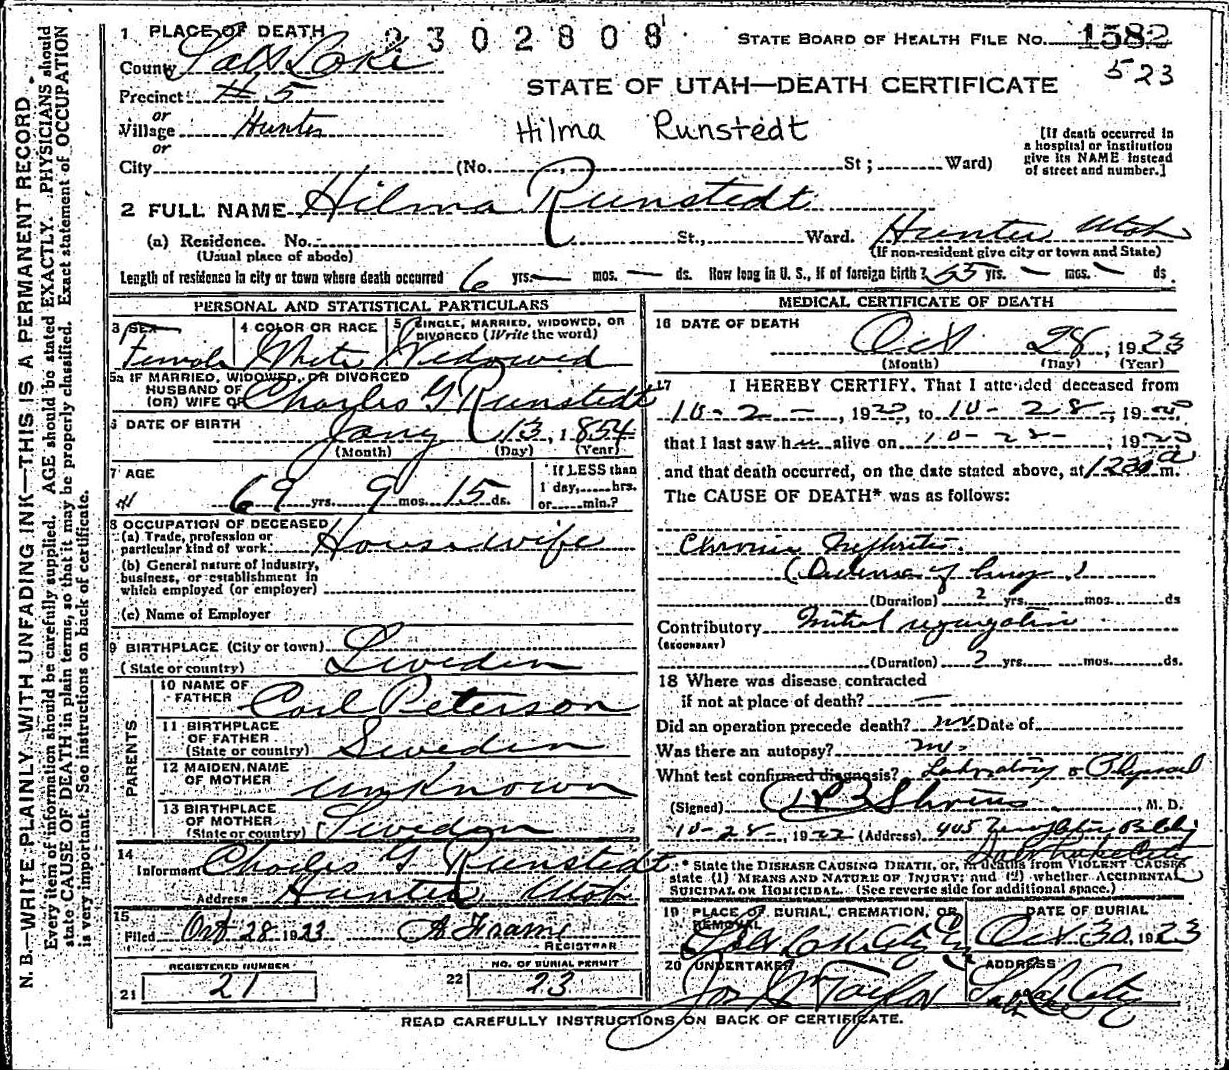 N. B.—WRITE PLAINLY WITH UNFADING INK—THIS IS A PERMANENT RECORD
Every item of information should be carefully supplied. AGE should be stated EXACTLY. PHYSICIANS should
state CAUSE OF DEATH in plain terms, so that it may be properly classified. Exact statement of OCCUPATION
is very important. See instructions on back of certificate.
1 PLACE OF DEATH 2302808 STATE BOARD OF HEALTH FILE No. 1582
County Salt Lake 523
STATE OF UTAH—DEATH CERTIFICATE
Precinct # 5
or
Village Hunter Hilma Runstedt
or
City (No. St; Ward)
[If death occurred in
a hospital or institution
give its NAME instead
of street and number.]
2 FULL NAME Hilma Runstedt
(a) Residence. No. St., Ward. Hunter Utah
(Usual place of abode) (If non-resident give city or town and State)
Length of residence in city or town where death occurred 6 yrs.— mos. — ds. How long in U. S., if of foreign birth? 53 yrs. — mos. — ds
PERSONAL AND STATISTICAL PARTICULARS
3 SEX 4 COLOR OR RACE 5 SINGLE, MARRIED, WIDOWED, OR
DIVORCED (Write the word)
Female White Widowed
5a IF MARRIED, WIDOWED, OR DIVORCED
HUSBAND OF
(OR) WIFE OF Charles G Runstedt
6 DATE OF BIRTH Jany 13, 1854
(Month) (Day) (Year)
7 AGE If LESS than
69 yrs. 9 mos. 15 ds. 1 day, hrs.
or min.?
8 OCCUPATION OF DECEASED
(a) Trade, profession or
particular kind of work Housewife
(b) General nature of industry,
business, or establishment in
which employed (or employer)
(c) Name of Employer
9 BIRTHPLACE (City or town)
(State or country) Sweden
PARENTS
10 NAME OF
FATHER Carl Peterson
11 BIRTHPLACE
OF FATHER
(State or country) Sweden
12 MAIDEN NAME
OF MOTHER Unknown
13 BIRTHPLACE
OF MOTHER
(State or country) Sweden
14
Informant Charles G Runstedt
Address Hunter Utah
15
Filed Oct 28 1923
REGISTRAR
REGISTERED NUMBER NO. OF BURIAL PERMIT
21 21 22 23
MEDICAL CERTIFICATE OF DEATH
16 DATE OF DEATH
Oct 28, 1923
(Month) (Day) (Year)
17 I HEREBY CERTIFY, That I attended deceased from
10-2-, 19 to 10-28-, 19
that I last saw h alive on 10-28-, 19
and that death occurred, on the date stated above, at m.
The CAUSE OF DEATH* was as follows:
Chronic Nephritis
(Duration) 2 yrs. mos. ds
Contributory Mitral regurgitation
(SECONDARY)
(Duration) 2 yrs. mos. ds.
18 Where was disease contracted
if not at place of death? —
Did an operation precede death? no. Date of
Was there an autopsy? no.
What test confirmed diagnosis? Laboratory & Physical
(Signed) , M. D.
10-28-1922 (Address) 405
* State the DISEASE CAUSING DEATH, or, in deaths from VIOLENT CAUSES
state (1) MEANS AND NATURE OF INJURY; and (2) whether ACCIDENTAL
SUICIDAL OR HOMICIDAL. (See reverse side for additional space.)
19 PLACE OF BURIAL, CREMATION, OR
REMOVAL DATE OF BURIAL
Salt Lake City Oct 30, 1923
20 UNDERTAKER ADDRESS
Jos Wm Taylor Salt Lake City
READ CAREFULLY INSTRUCTIONS ON BACK OF CERTIFICATE.